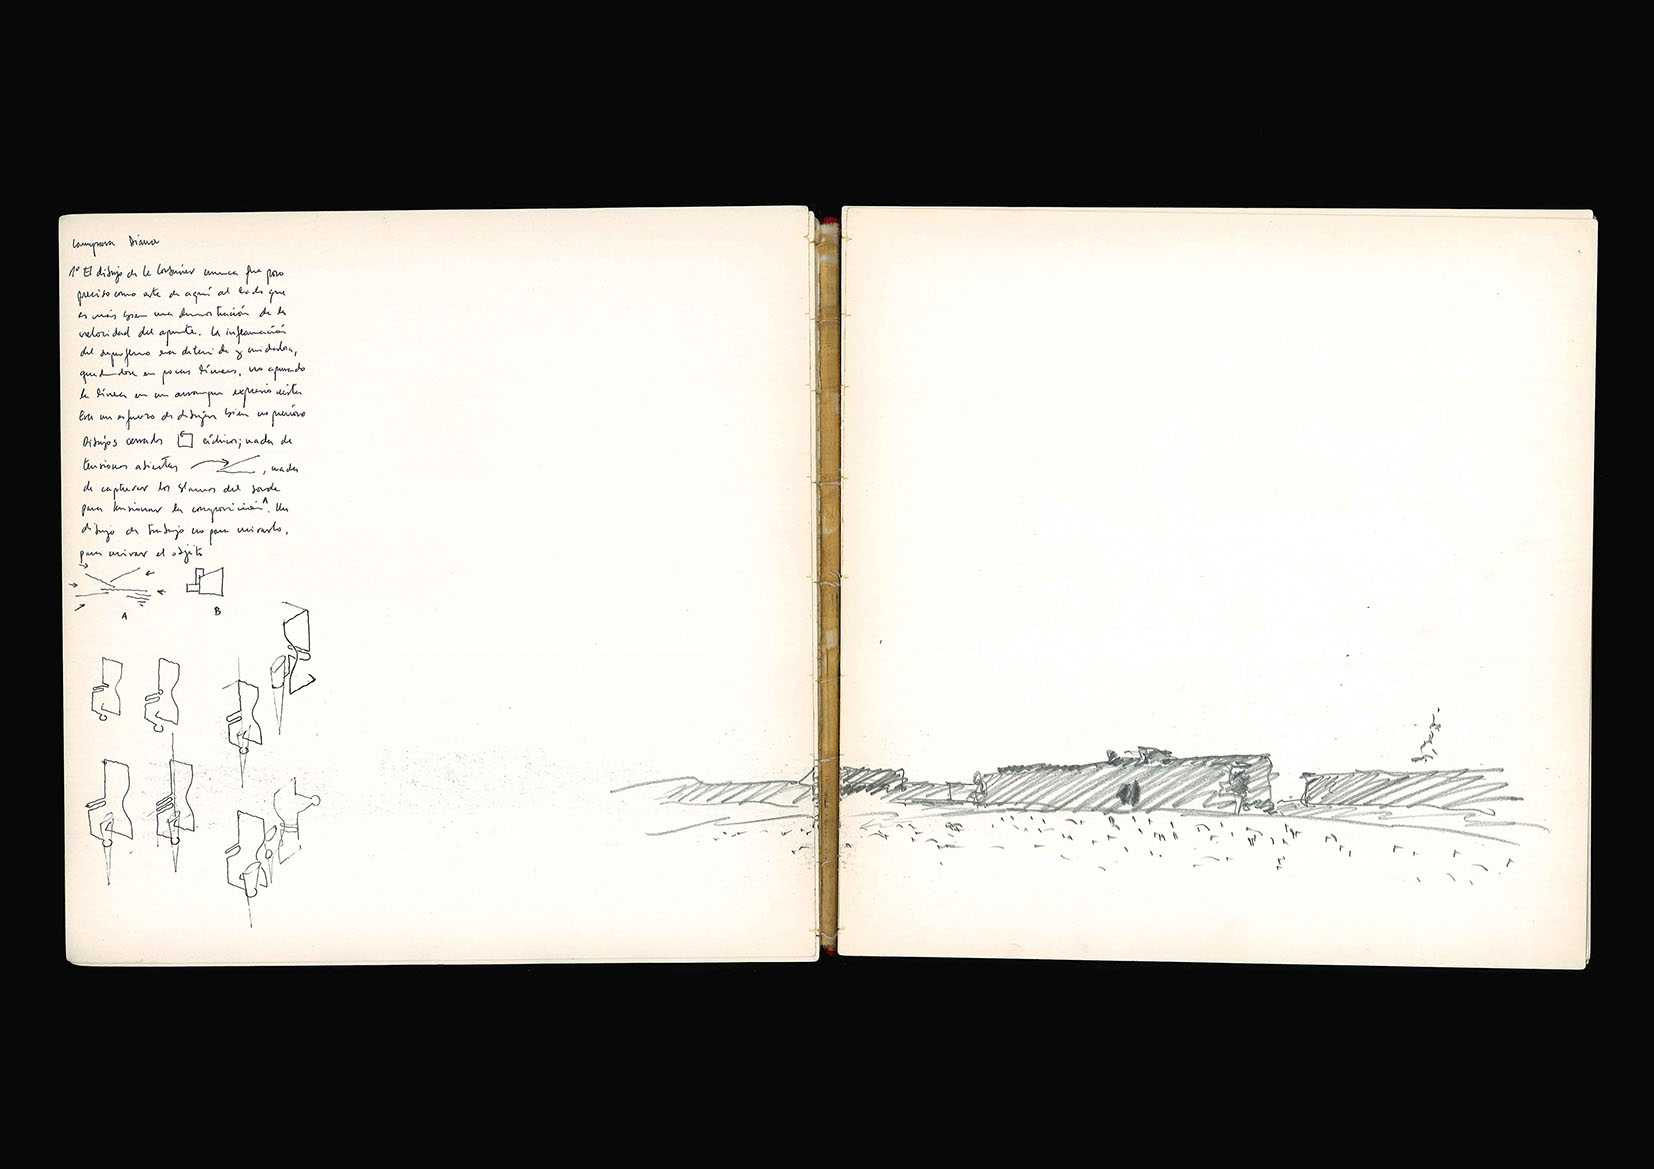 Lampara Diana
1º El dibujo de Le Corbusier nunca fue poco
preciso como este de aquí al lado que
es más bien una demostración de la
velocidad del apunte. La información
del era y cuidadosa,
quedandose en pocas líneas, no apurando
la línea en un arranque expresionista
Era un esfuerzo de dibujar bien no
Dibujos cerrados nada de
tensiones abiertas , nada
de capturar los blancos del borde
para tensionar la composición A. Un
dibujo de trabajo no para mirarlo,
para mirar el objeto
A B